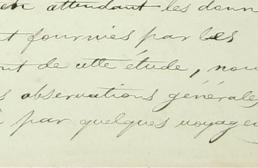 attendant les donn
t fournies par les
nt de cette étude, nou
s observations générales
par quelques voyage